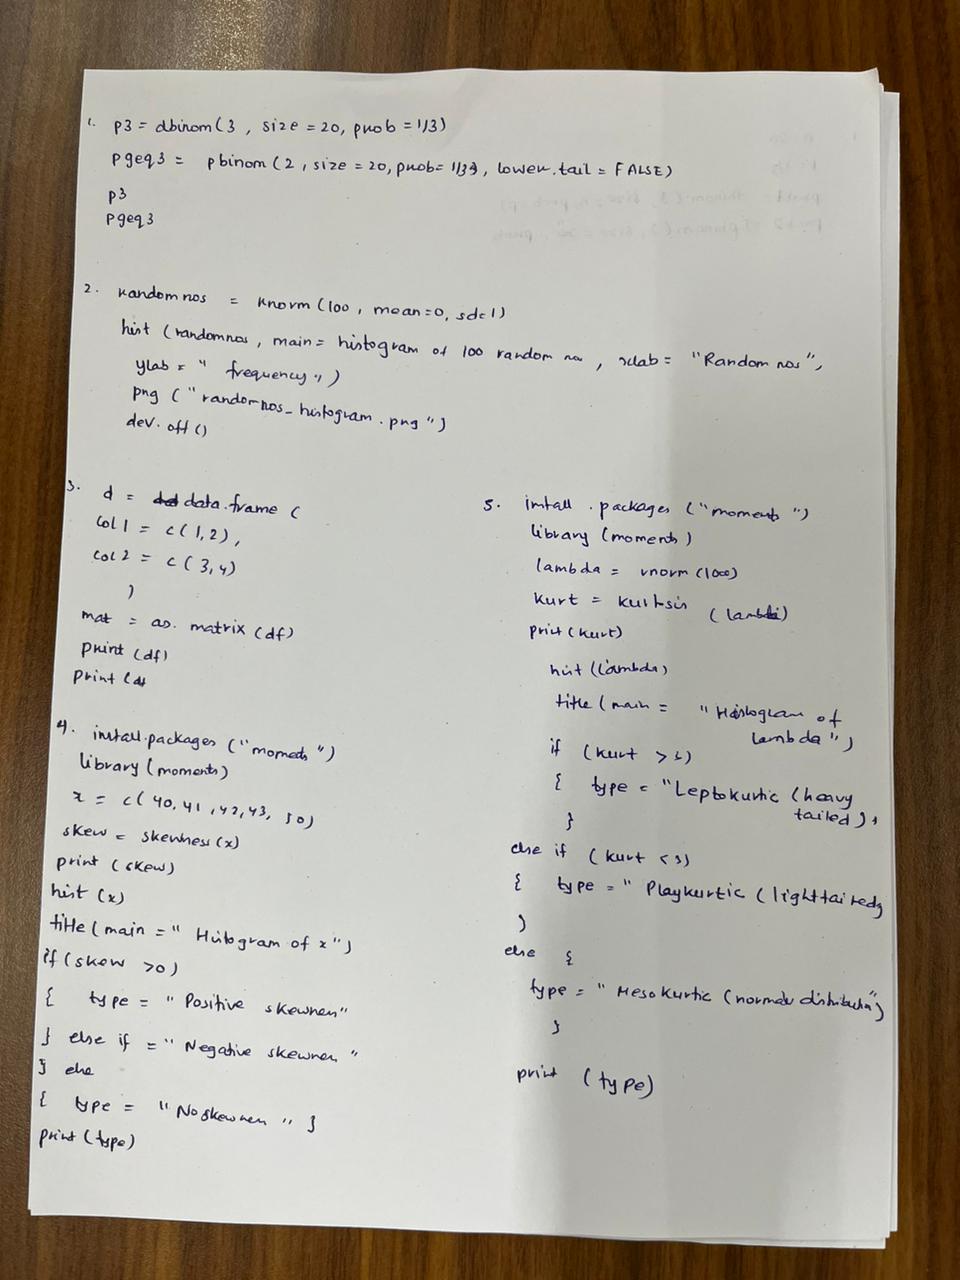 1. p3 = dbinom(3, size = 20, prob = 1/3)
pgeq3 = pbinom(2, size = 20, prob = 1/3, lower.tail = FALSE)
p3
pgeq3
2. randomnos = rnorm(100, mean=0, sd=1)
hist (randomnos, main= histogram of 100 random no, xlab = "Random nos",
ylab = " frequency")
png ("randomnos_histogram.png")
dev.off()
3. d = data.frame (
col1 = c(1,2),
col2 = c(3,4)
)
mat = as.matrix (df)
print (df)
print (df
4. install.packages ("momets")
library (moments)
x = c(40, 41, 42, 43, 50)
skew = skewness (x)
print (skew)
hist (x)
title (main = " Histogram of x")
if (skew >0)
{ type = " Positive skewness"
} else if = " Negative skewness "
} else
{ type = " No skewness " }
print (type)
5. install.packages ("moments")
library (moments)
lambda = rnorm (1000)
kurt = kurtosis (lambda)
print (kurt)
hist (lambda)
title (main = " Histogram of
lambda")
if (kurt >3)
{ type = "Leptokurtic (heavy
tailed)"
}
else if (kurt <3)
{ type = " Playkurtic (light tailed)
}
else {
type = " Mesokurtic (normal distribution")
}
print (type)